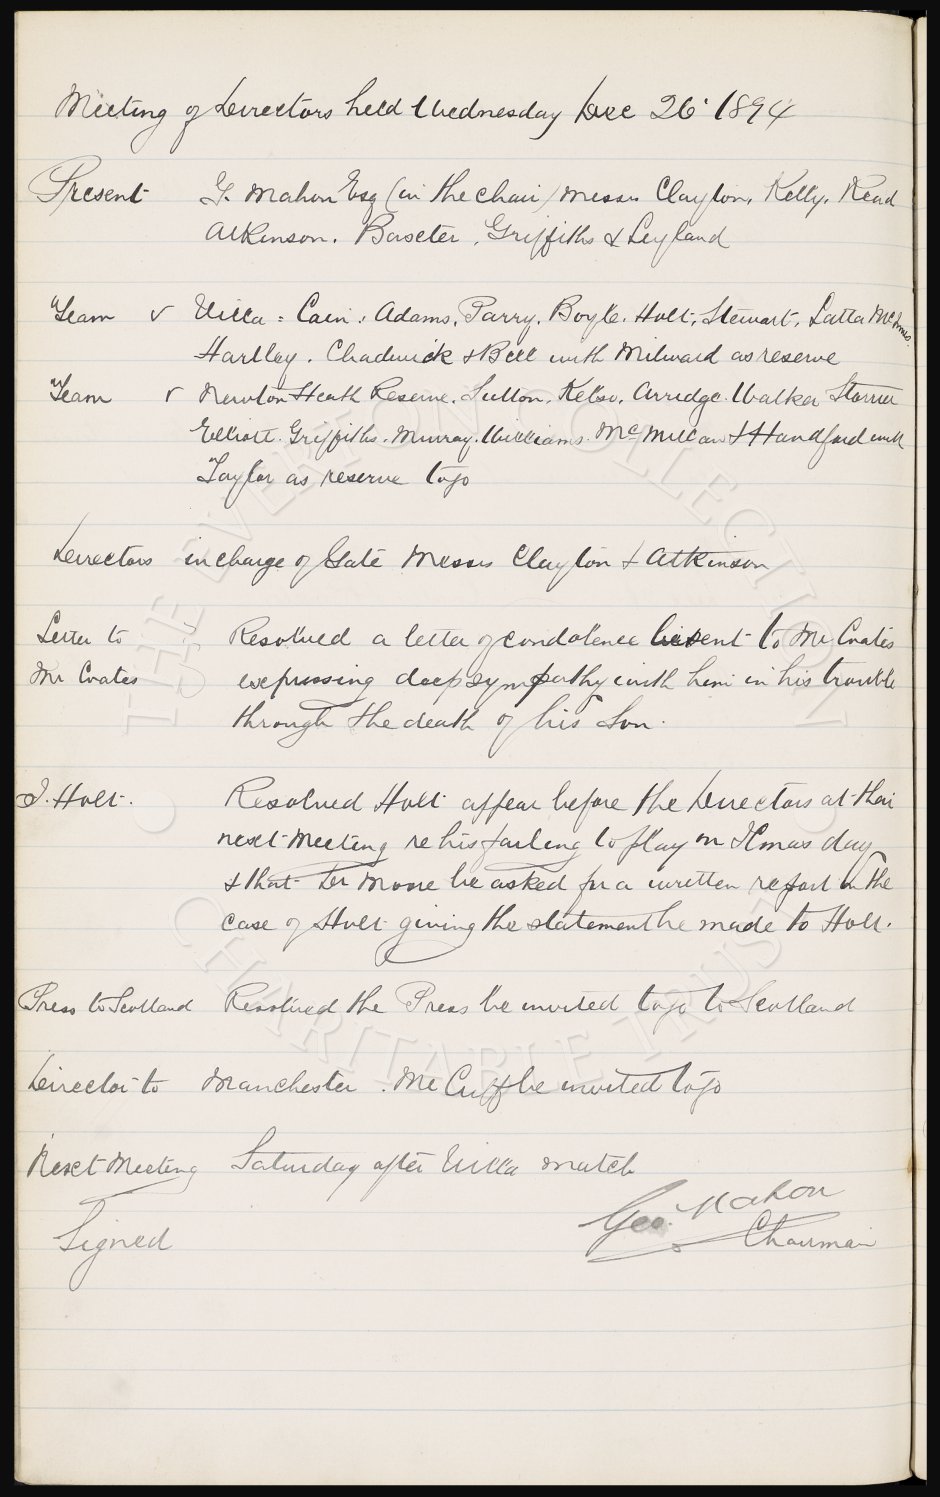 Meeting of Directors held Wednesday Dec 26 1894
Present G. Mahon Esq (in the chair) Messrs Clayton, Kelly, Read
Atkinson. Baxter, Griffiths & Leyland
Team v Villa: Cain, Adams, Parry, Boyle, Holt, Stewart, Latta McInnes
Hartley. Chadwick & Bell with Milward as reserve
Team v Newton Heath Reserve. Sutton, Kelso, Arridge. Walker Storrier
Elliott. Griffiths. Murray. Williams. McMillan & Handford with
Taylor as reserve to go
Directors in charge of Gate Messrs Clayton & Atkinson
Letter to Resolved a letter of condolence be sent to Mr Coates
Mr Coates expressing deep sympathy with him in his trouble
through the death of his Son.
J. Holt. Resolved Holt appear before the Directors at their
next Meeting re his failing to play on Xmas day
& that Dr Moore be asked for a written report in the
case of Holt giving the statement he made to Holt.
Press to Scotland Resolved the Press be invited to go to Scotland
Director to Manchester. Mr Cuff be invited to go
Next Meeting Saturday after Villa match
Geo. Mahon
Signed Chairman
THE EVERTON COLLECTION
CHARITABLE TRUST